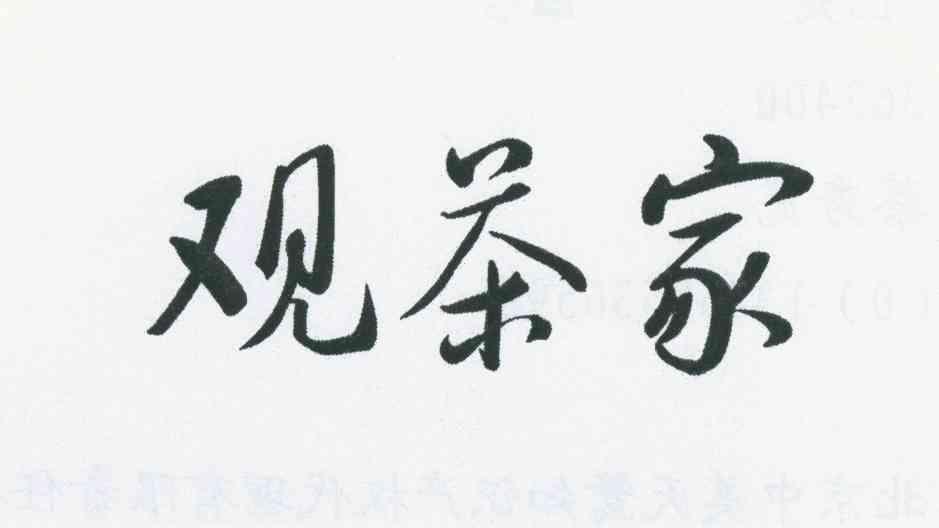 观茶家